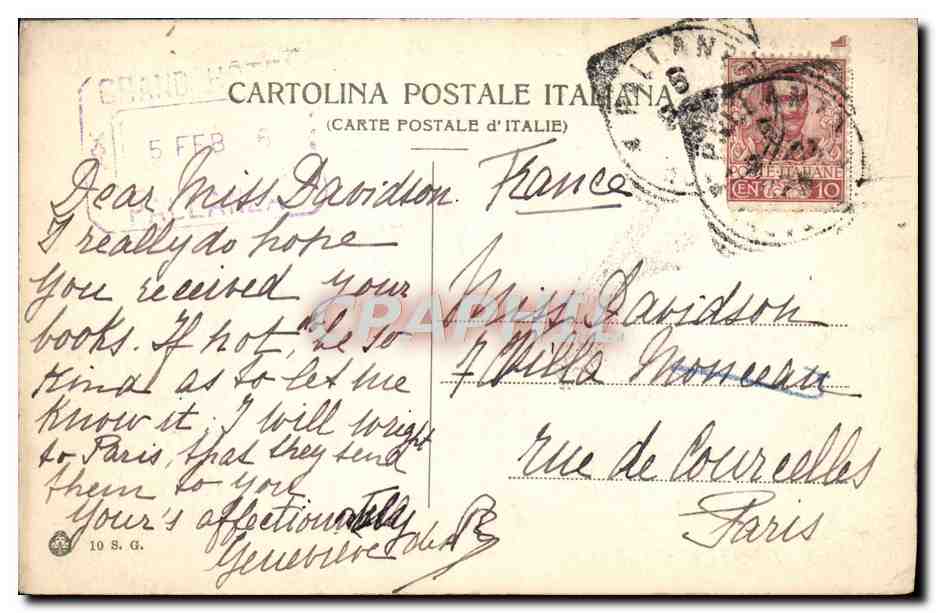 CARTOLINA POSTALE ITALIANA
(CARTE POSTALE d'ITALIE)
GRAND HOTEL
5 FEB 6
PALLANZA
PALLANZA
POSTE ITALIANE
CENT 10
Dear Miss Davidson
I really do hope
you received your
books. If not, be so
kind as to let me
know it. I will wright
to Paris, that they send
them to you
Your's affectionately
Geneviève de
France
Miss Davidson
7 Villa Monceau
rue de Courcelles
Paris
10 S. G.
CPAPHIL